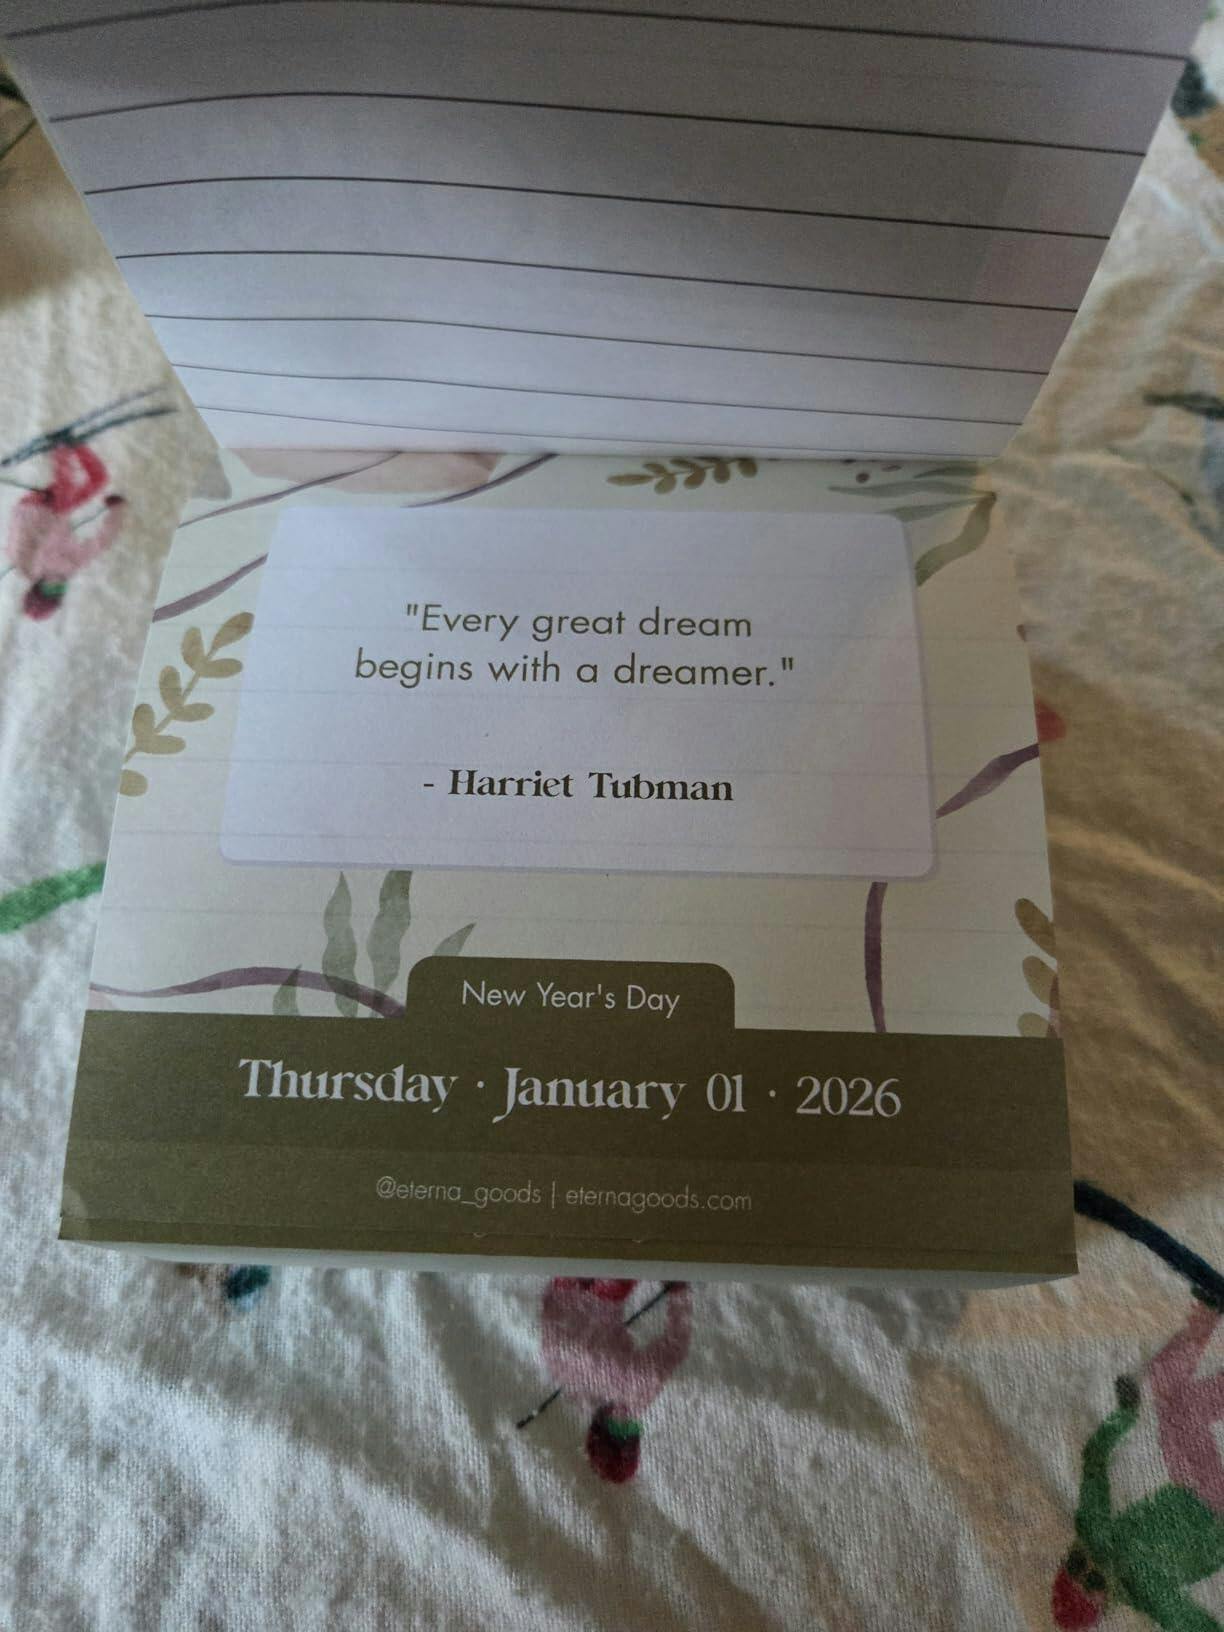 "Every great dream
begins with a dreamer."
- Harriet Tubman
New Year's Day
Thursday · January 01 · 2026
@eterna_goods | eternagoods.com